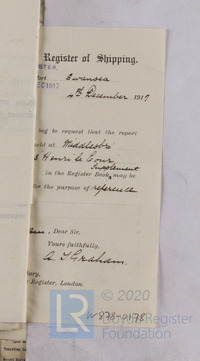 Register of Shipping.
STER.
ort Swansea
DEC 1917
4th December 1917
beg to request that the report
held at Middlesbro'
S Henri le Cour,
Supplement
in the Register Book, may be
for the purpose of reference
, Dear Sir,
Yours faithfully,
A. J. Graham.
ary,
Register, London.
W978-0178
© 2020
Lloyd's Register
Foundation